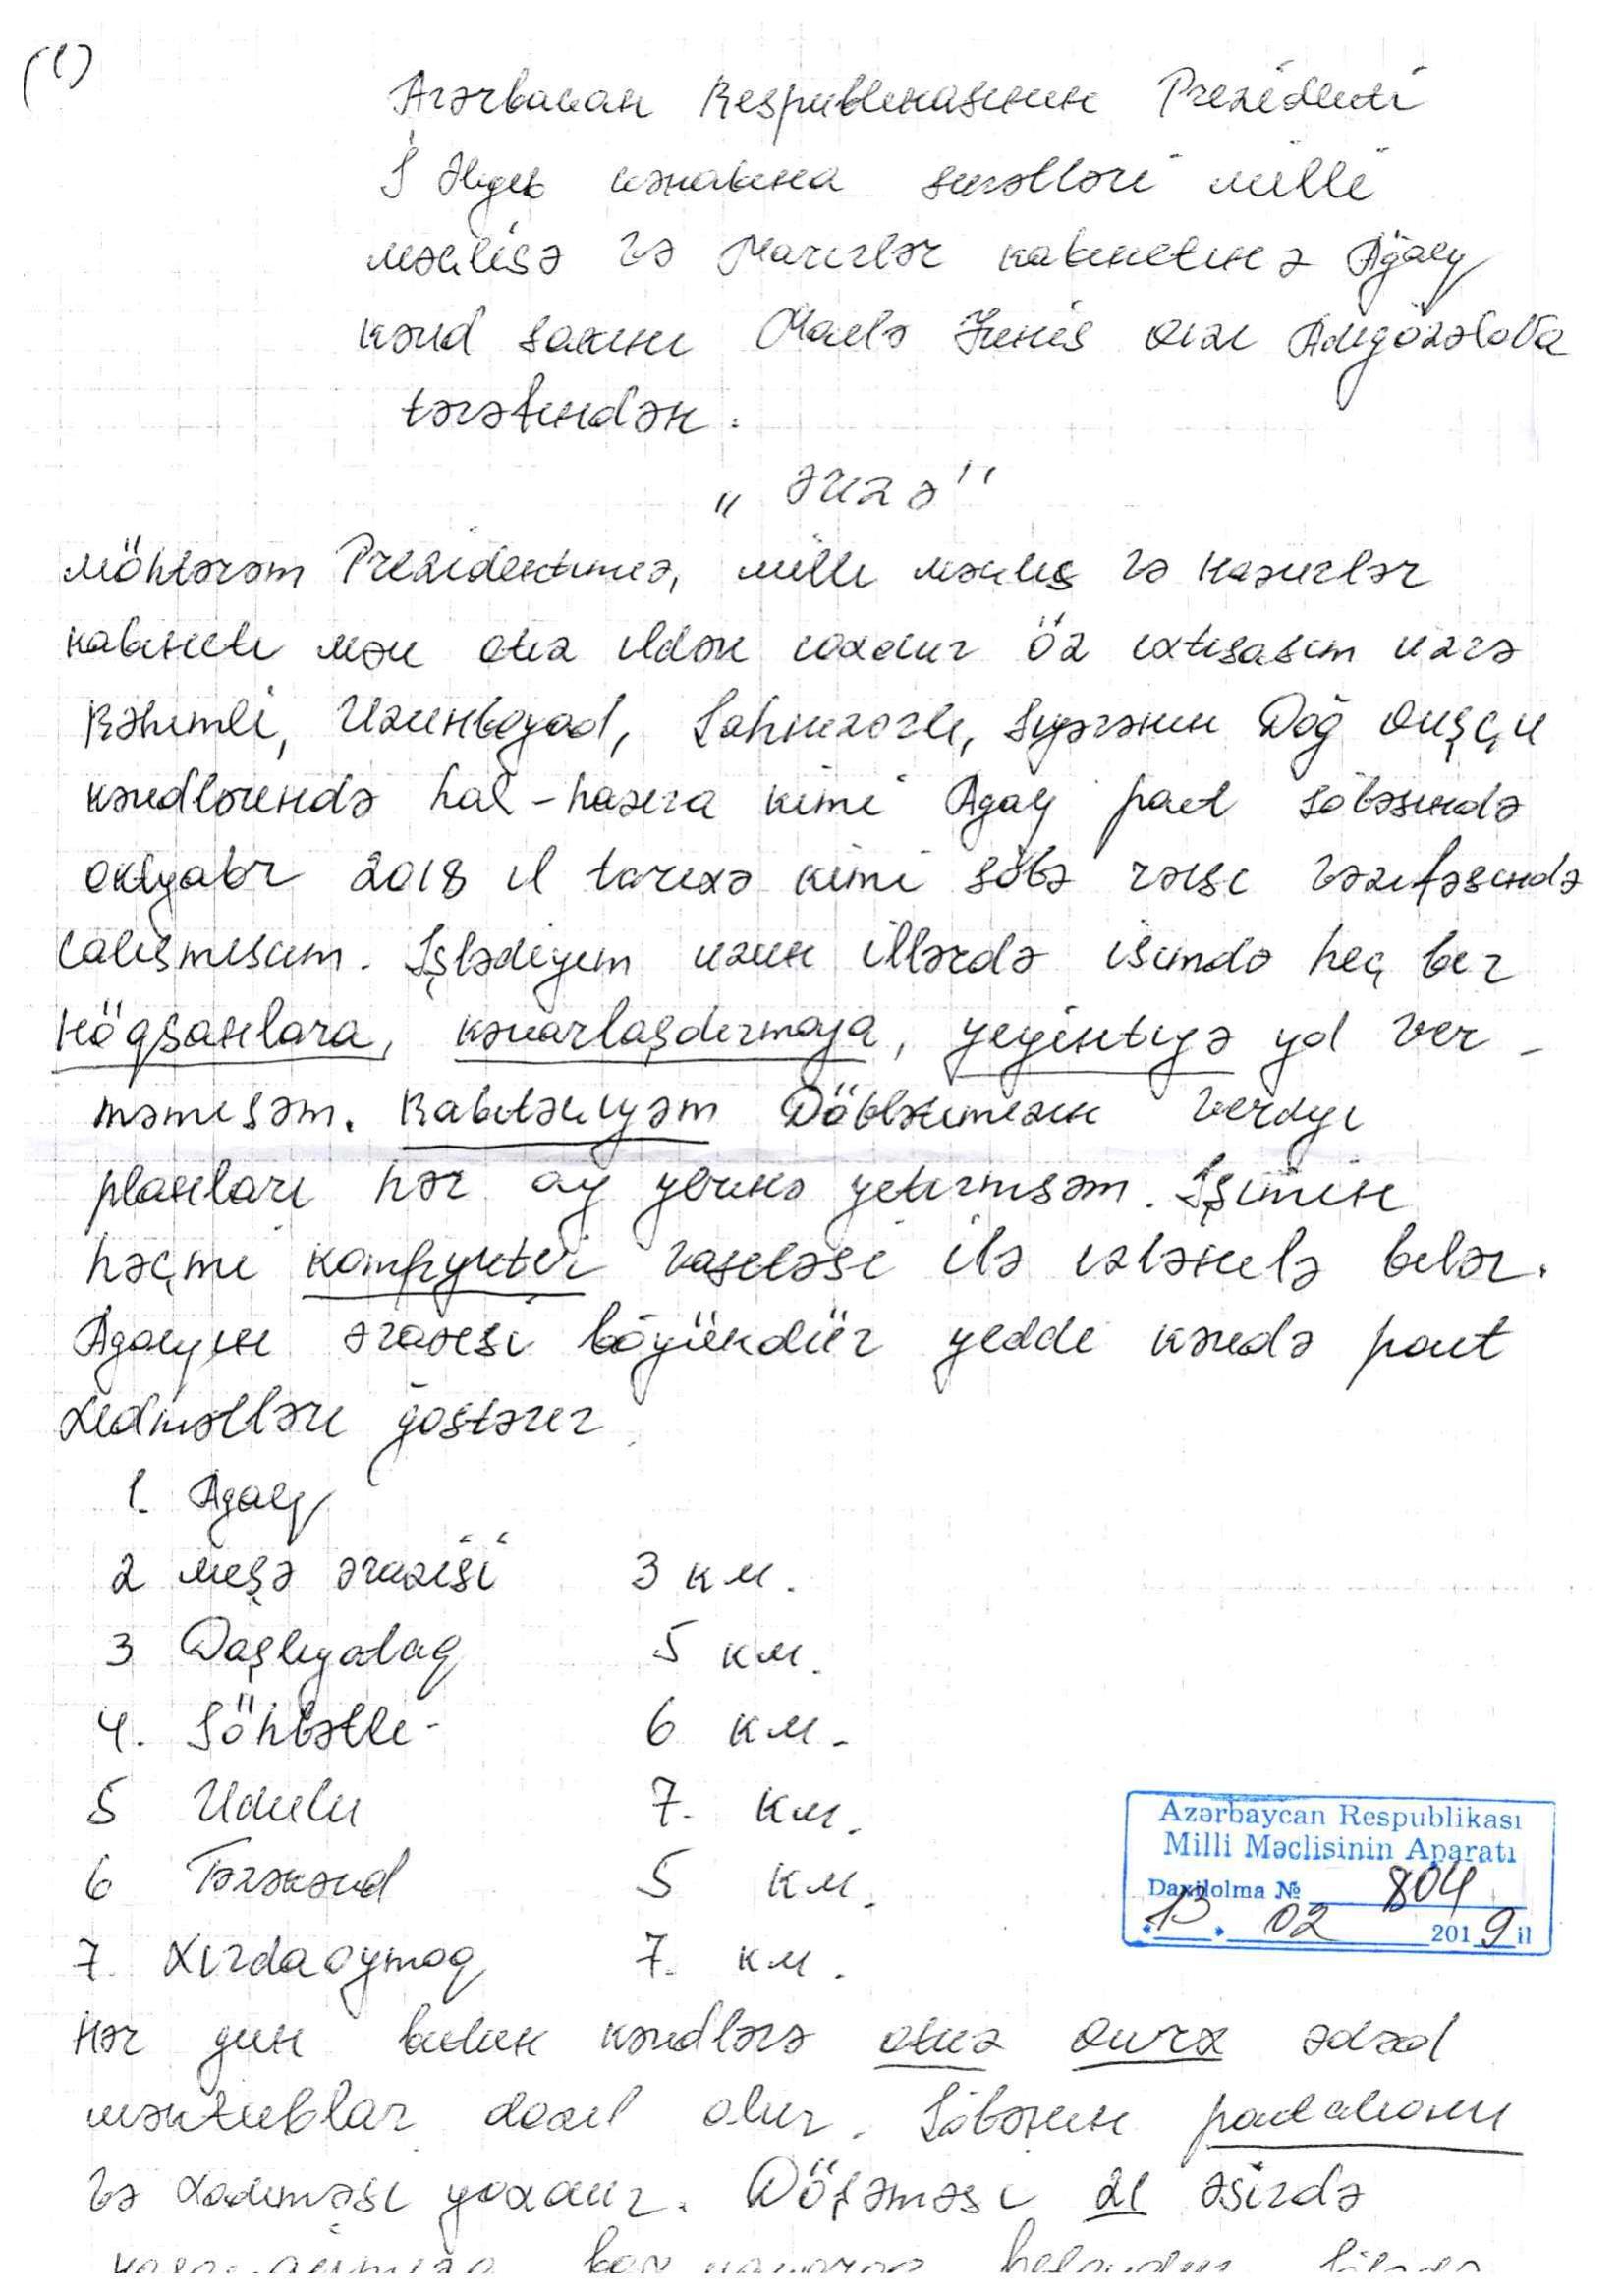 (1)
Azərbaycan Respublikasının Prezidenti
İ Əliyev cənabına surətləri milli
məclisə və Nazirlər kabinetinə Ağalıy
kənd sakini Maelə Yunis qızı Adıgözəlova
tərəfindən.
„ Ərizə"
Möhtərəm Prezidentimiə, milli məclis və Nazirlər
kabineti mən otuz ildən çoxdur öz ixtisasım üzrə
Rəhimli, Uzunboyad, Dağ Quşçu
kəndlərində hal-hazıra kimi Agalıy poçt şöbəsində
oktyabr 2018 il tarixə kimi şöbə rəisi vəzifəsində
calışmışam. İşlədiyim uzun illərdə işimdə heç bir
nöqsanlara, kənarlaşdırmaya, yeyintiyə yol ver-
məmişəm. Rabitəçiyəm Dövlətimizin verdiyi
planları hər ay yerinə yetirmişəm. İşimin
həçmi kompyuter vasitəsi ilə izlənilə bilər.
Agalıyın ərazisi böyükdür yeddi kəndə poçt
xidmətləri göstərir
1. Agalıy
2 meşə ərazisi 3 км.
3 Daşlıyolaq 5 км.
4. Söhbətli- 6 км.
5 Udulu 7. км.
6 Tərəkənd 5 км.
7. Xırdaoymaq 7. км.
Hər gün bütün kəndlərə otuz qırx ədəd
məktublar daxil olur. Şöbənin poçtalionu
və xadiməsi yoxdur. Döşəməsi 21 əsirdə
Azərbaycan Respublikası
Milli Məclisinin Aparatı
Daxilolma № 804
13 . 02 2019 il